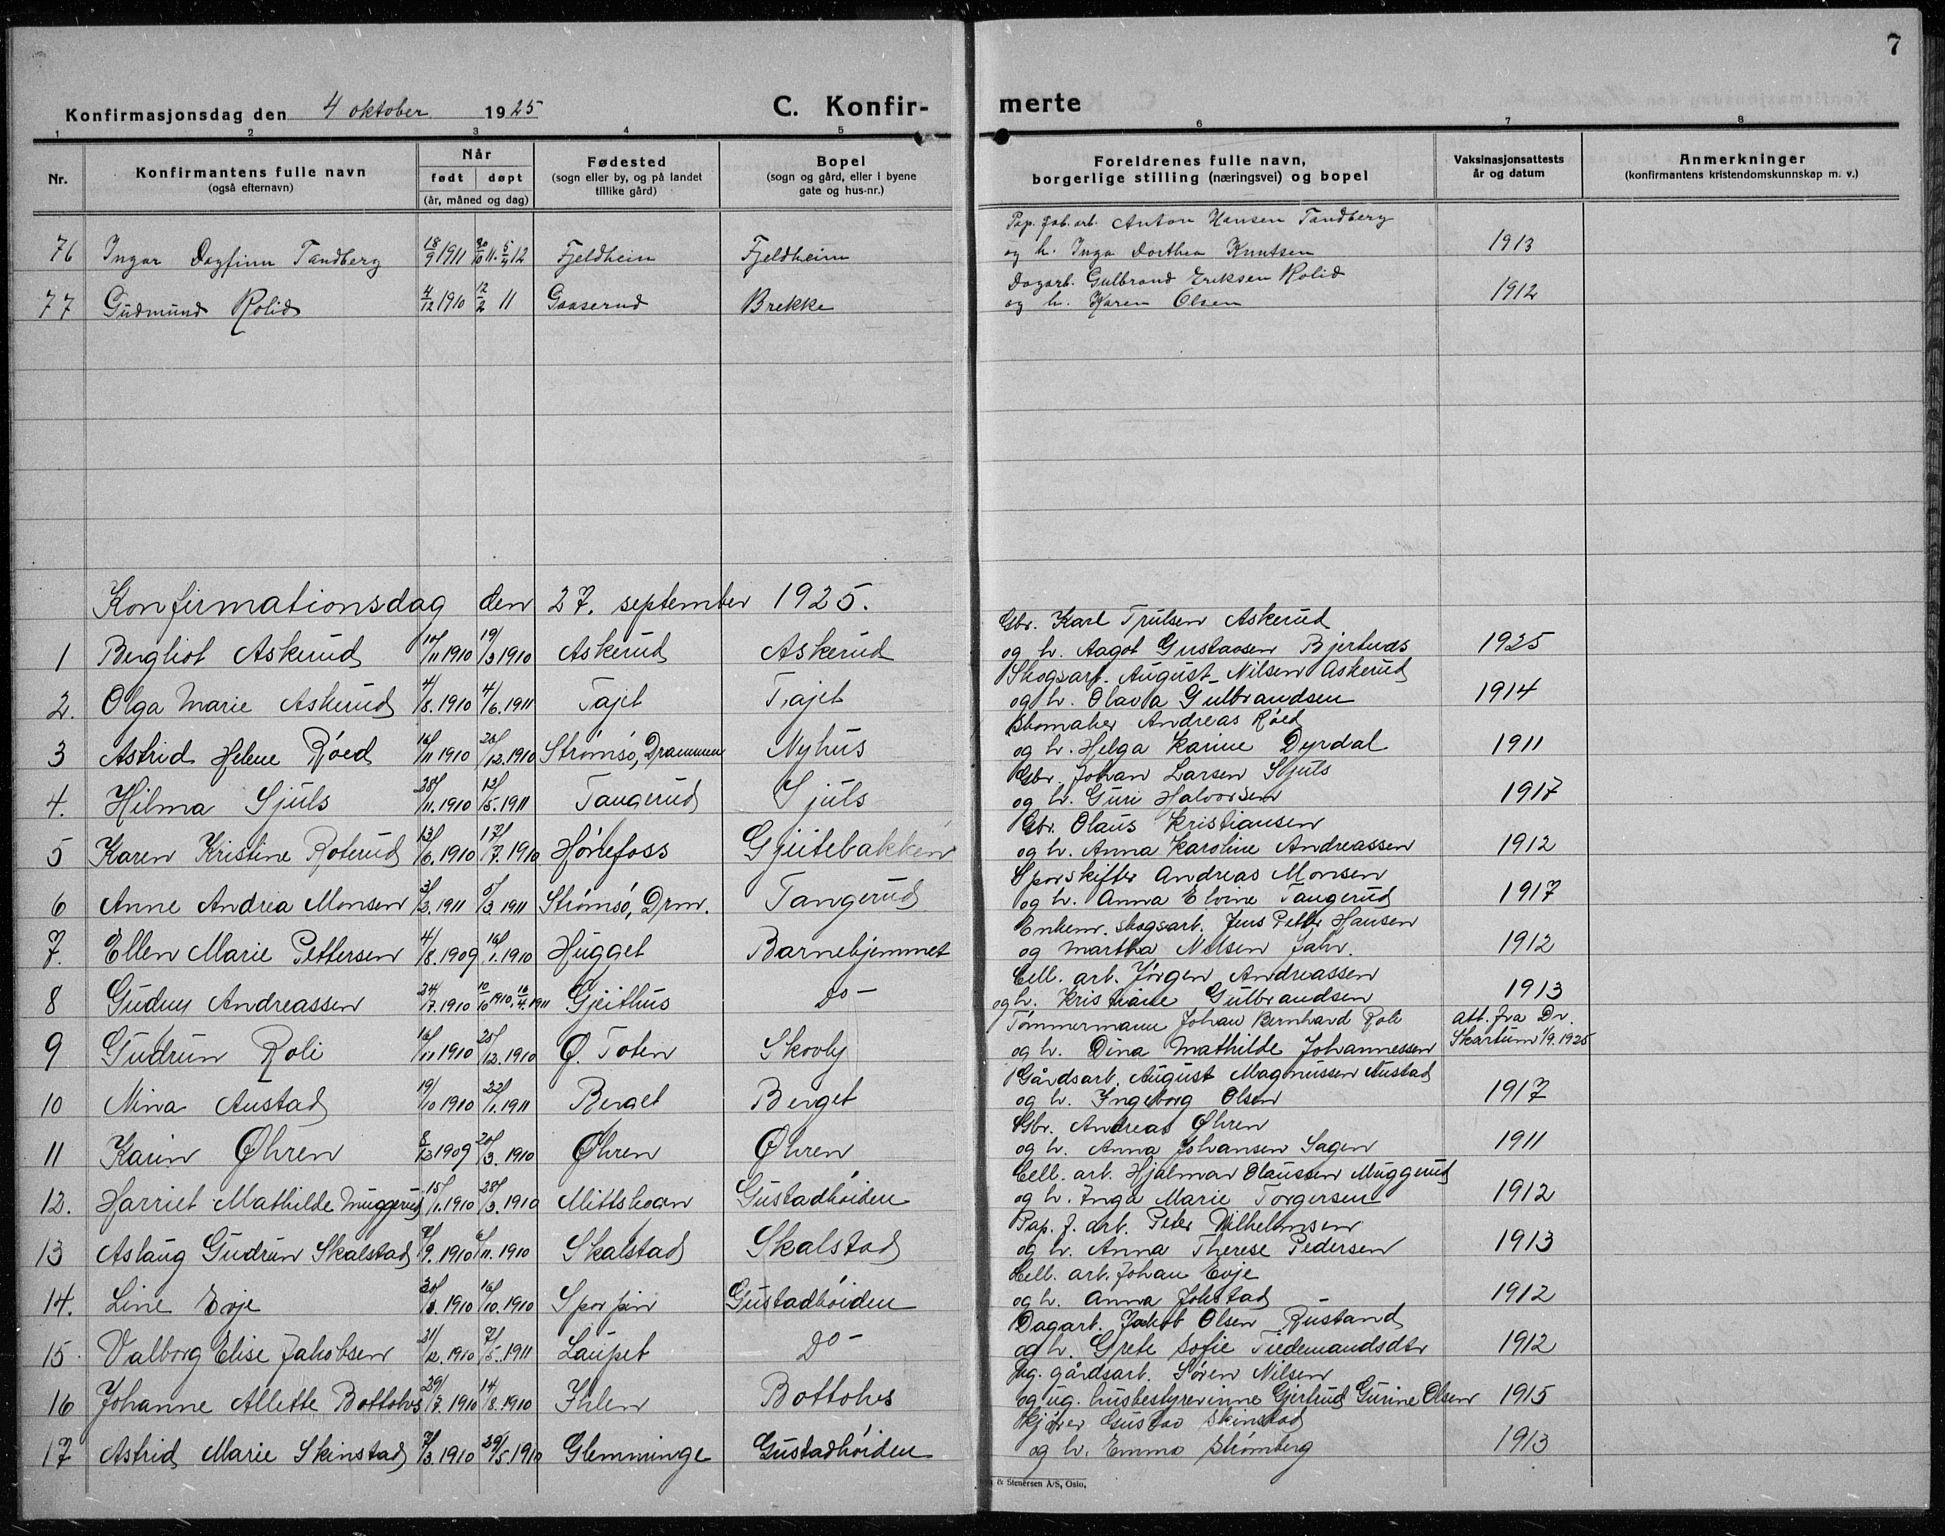 7
Konfirmasjonsdag den 4 oktober 1925 C. Konfir- merte
1 2 3 4 5 6 7 8
Nr. Konfirmantens fulle navn (også efternavn) Når født døpt (år, måned og dag) Fødested (sogn eller by, og på landet tillike gård) Bopel (sogn og gård, eller i byene gate og hus-nr.) Foreldrenes fulle navn, borgerlige stilling (næringsvei) og bopel Vaksinasjonsattests år og datum Anmerkninger (konfirmantens kristendomskunnskap m. v.)
Pap. fab. arb. Anton Hansen Tandberg
76 Ingar Dagfinn Tandberg 18/9 1911 30/10 11. 5/4 12 Fjeldheim Fjeldheim og h. Inga Dorthea Knutsen 1913
Dagarb. Gulbrand Eriksen Rolid
77 Gudmund Rolid 4/12 1910 12/2 11 Gaaserud Brekke og h. Karen Olsen 1912
Konfirmationsdag den 27. september 1925.
Gbr. Karl Trulsen Askerud
1 Bergliot Askerud 10/11 1910 19/3 1910 Askerud Askerud og h. Aagot Gustavsen Bjertnds 1925
Skogsarb. August Nilsen Askerud
2. Olga Marie Askerud 4/8. 1910 4/6. 1911 Tajet Tajet og h. Olava Gulbrandsen 1914
Skomaker Andreas Røed
3 Astrid Helene Røed 16/11 1910 26/12. 1910 Strømsø, Drammen Nyhus og h. Helga Karine Dyrdal 1911
Gbr. Johan Larsen Sjuls
4. Hilma Sjuls 28/11. 1910 13/5. 1911 Tangerud Sjuls og h. Guri Halvorsen 1917
Gbr. Olaus Kristiansen
5 Karen Kristine Roterud 13/6. 1910 17/7. 1910 Hønefoss Gjeitebakken og h. Anna Karoline Andreassen 1912
Sporskifter Andreas Monsen
6 Anne Andrea Monsen 3/3. 1911 5/3. 1911 Strømsø, Drm. Tangerud og h. Anna Elvine Tangerud 1917
Enkem. skogsarb. Jens Petter Hansen
7. Ellen Marie Pettersen 4/8. 1909 16/1. 1910 Hugget Barnehjemmet og Martha Nilsen Jahr. 1912
Cell. arb. Jørgen Andreassen
8 Gudny Andreassen 24/7. 1910 10/10 1910. 16/4. 1911 Gjeithus Do- og h. Kristiane Gulbrandsen 1913
Tømmermann Johan Bernhard Roli att. fra Dr.
9 Gudrun Roli 16/11 1910 25/12. 1910 Ø. Toten Skovly og h. Dina Mathilde Johannessen Skartum 1/9. 1925
Gårdsarb. August Magnussen Austad
10 Nina Austad 19/10 1910 22/1. 1911 Berget Berget og h. Ingeborg Olsen 1917
Gbr. Andreas Øhren
11 Karin Øhren 8/12 1909 20/3. 1910 Øhren Øhren og h. Anna Johansen Sagen 1911
Cell. arb. Hjalmar Olaussen Muggerud
12. Harriet Mathilde Muggerud 15/1. 1910 28/3. 1910 Gustadhøiden og h. Inga Marie Torgersen 1912
Pap. f. arb. Peter Vilhelmsen
13 Aslaug Gudrun Skalstad 9. 1910 6/11. 1910 Skalstad Skalstad og h. Anna Therese Pedersen 1913
Cell. arb. Johan Evje
14. Line Evje 30/8. 1910 16/10. 1910 Gustadhøiden og h. Anna Jokstad 1912
Dagarb. Jakob Olsen Rustand
15. Valborg Elise Jakobsen 31/12. 1910 7/5. 1911 Laupet Do- og h. Grete Sofie Tiedemandsdtr 1912
Ug. gårdsarb. Søren Nilsen
16 Johanne Allette Bottolvs 29/7. 1910 14/8. 1910 Ihlen Bottolvs og ug. husbestyrerinne Gjertrud Gurine Olsen 1915
Kjører Gustav Skinstad
17 Astrid Marie Skinstad 3. 1910 29/5. 1910 Glemminge Gustadhøiden og h. Emma Strømberg 1913
& Stenersen A/S, Oslo,